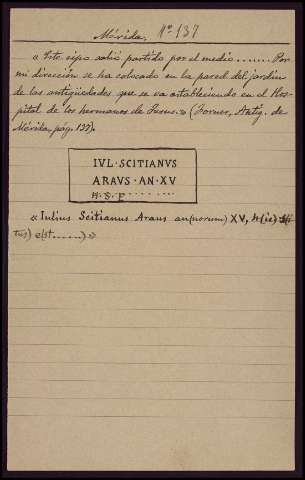 Mérida. Nº 137
« Este cipo salió partido por el medio ........ Por
mi dirección se ha colocado en la pared del jardín
de las antigüedades que se va estableciendo en el Hos-
pital de los hermanos de Jesus.» (Forner, Antig. de
Mérida, pág. 137).
IVL·SCITIANVS
ARAVS·AN·XV
H·S·E·······
« Iulius Scitianus Araus an(norum) XV, h(ic) si(
tus) e(st .......) »